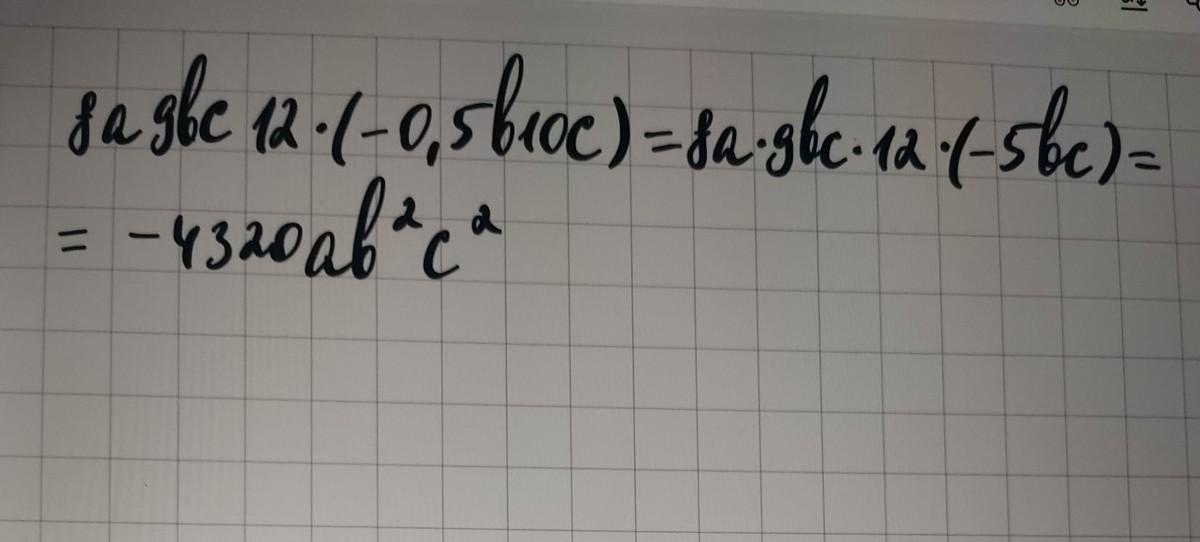 8a 9bc 12·(-0,5b10c)=8a·9bc·12·(-5bc)=
= -4320ab²c²